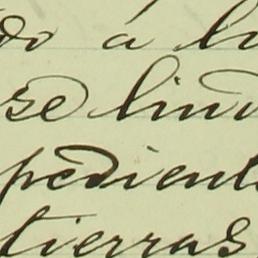 do a li
se lind
pedient
tierras